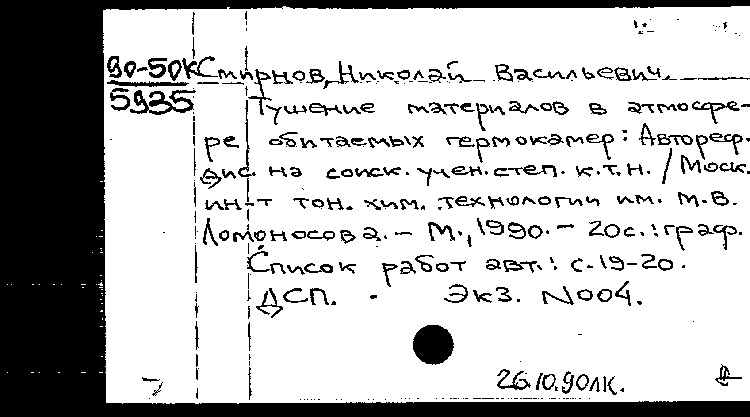 90-50К Смирнов, Николай Васильевич.
5935 Тушение материалов в атмосфе-
ре обитаемых гермокамер: Автореф.
дис. на соиск. учен. степ. к.т.н. / Моск.
ин-т тон. хим. технологии им. М.В.
Ломоносова. – М., 1990. – 20с.: граф.
Список работ авт.: с.19-20.
ДСП. Экз. N004.
26.10.90ЛК.